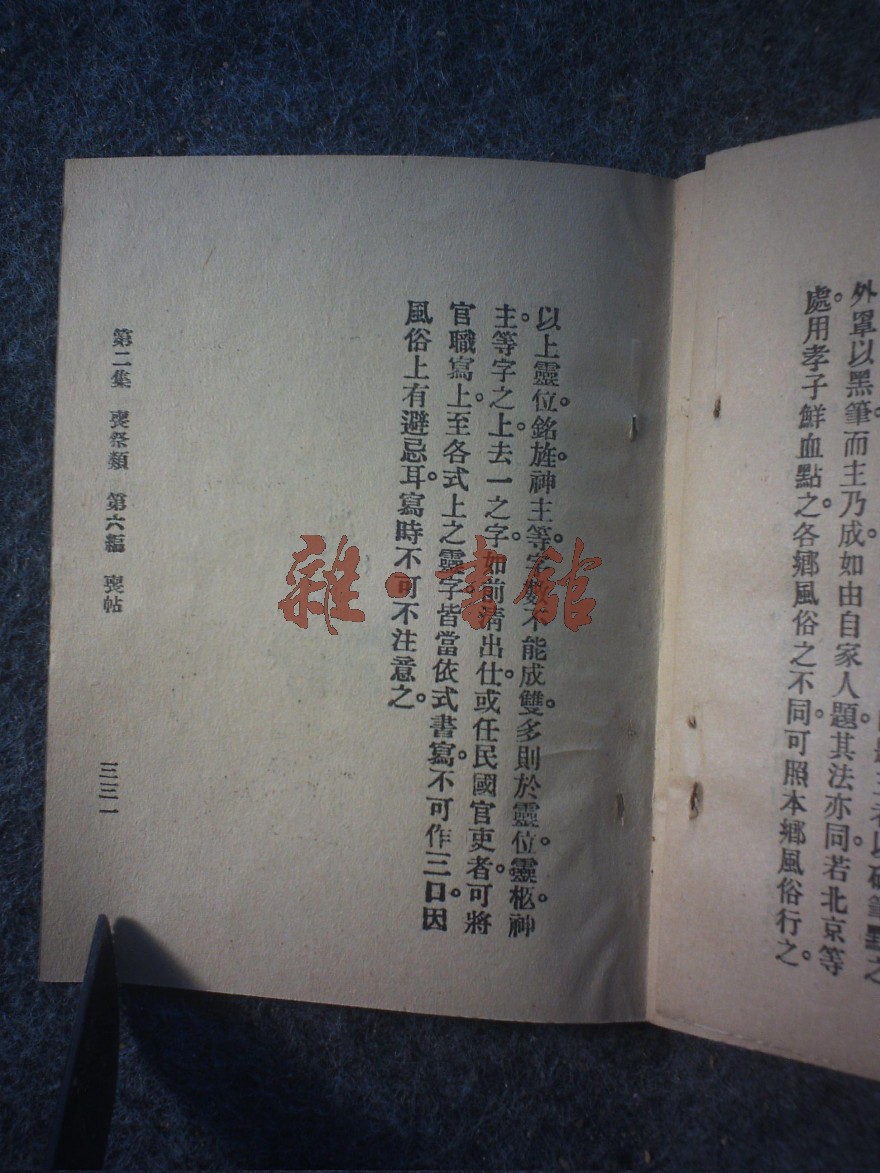 外罩以黑筆。而主乃成。如由自家人題。其法亦同。若北京等
處。用孝子鮮血點之。各鄉風俗之不同。可照本鄉風俗行之。
以上靈位。銘旌。神主等字數不能成雙。多則於靈位。靈柩神
主。等字之上。去一之字。如前清出仕。或任民國官吏者。可將
官職寫上。至各式上之靈字。皆當依式書寫。不可作三口。因
風俗上有避忌耳。寫時不可不注意之。
第二集 喪祭類 第六編 喪帖 三三一
雜·書館